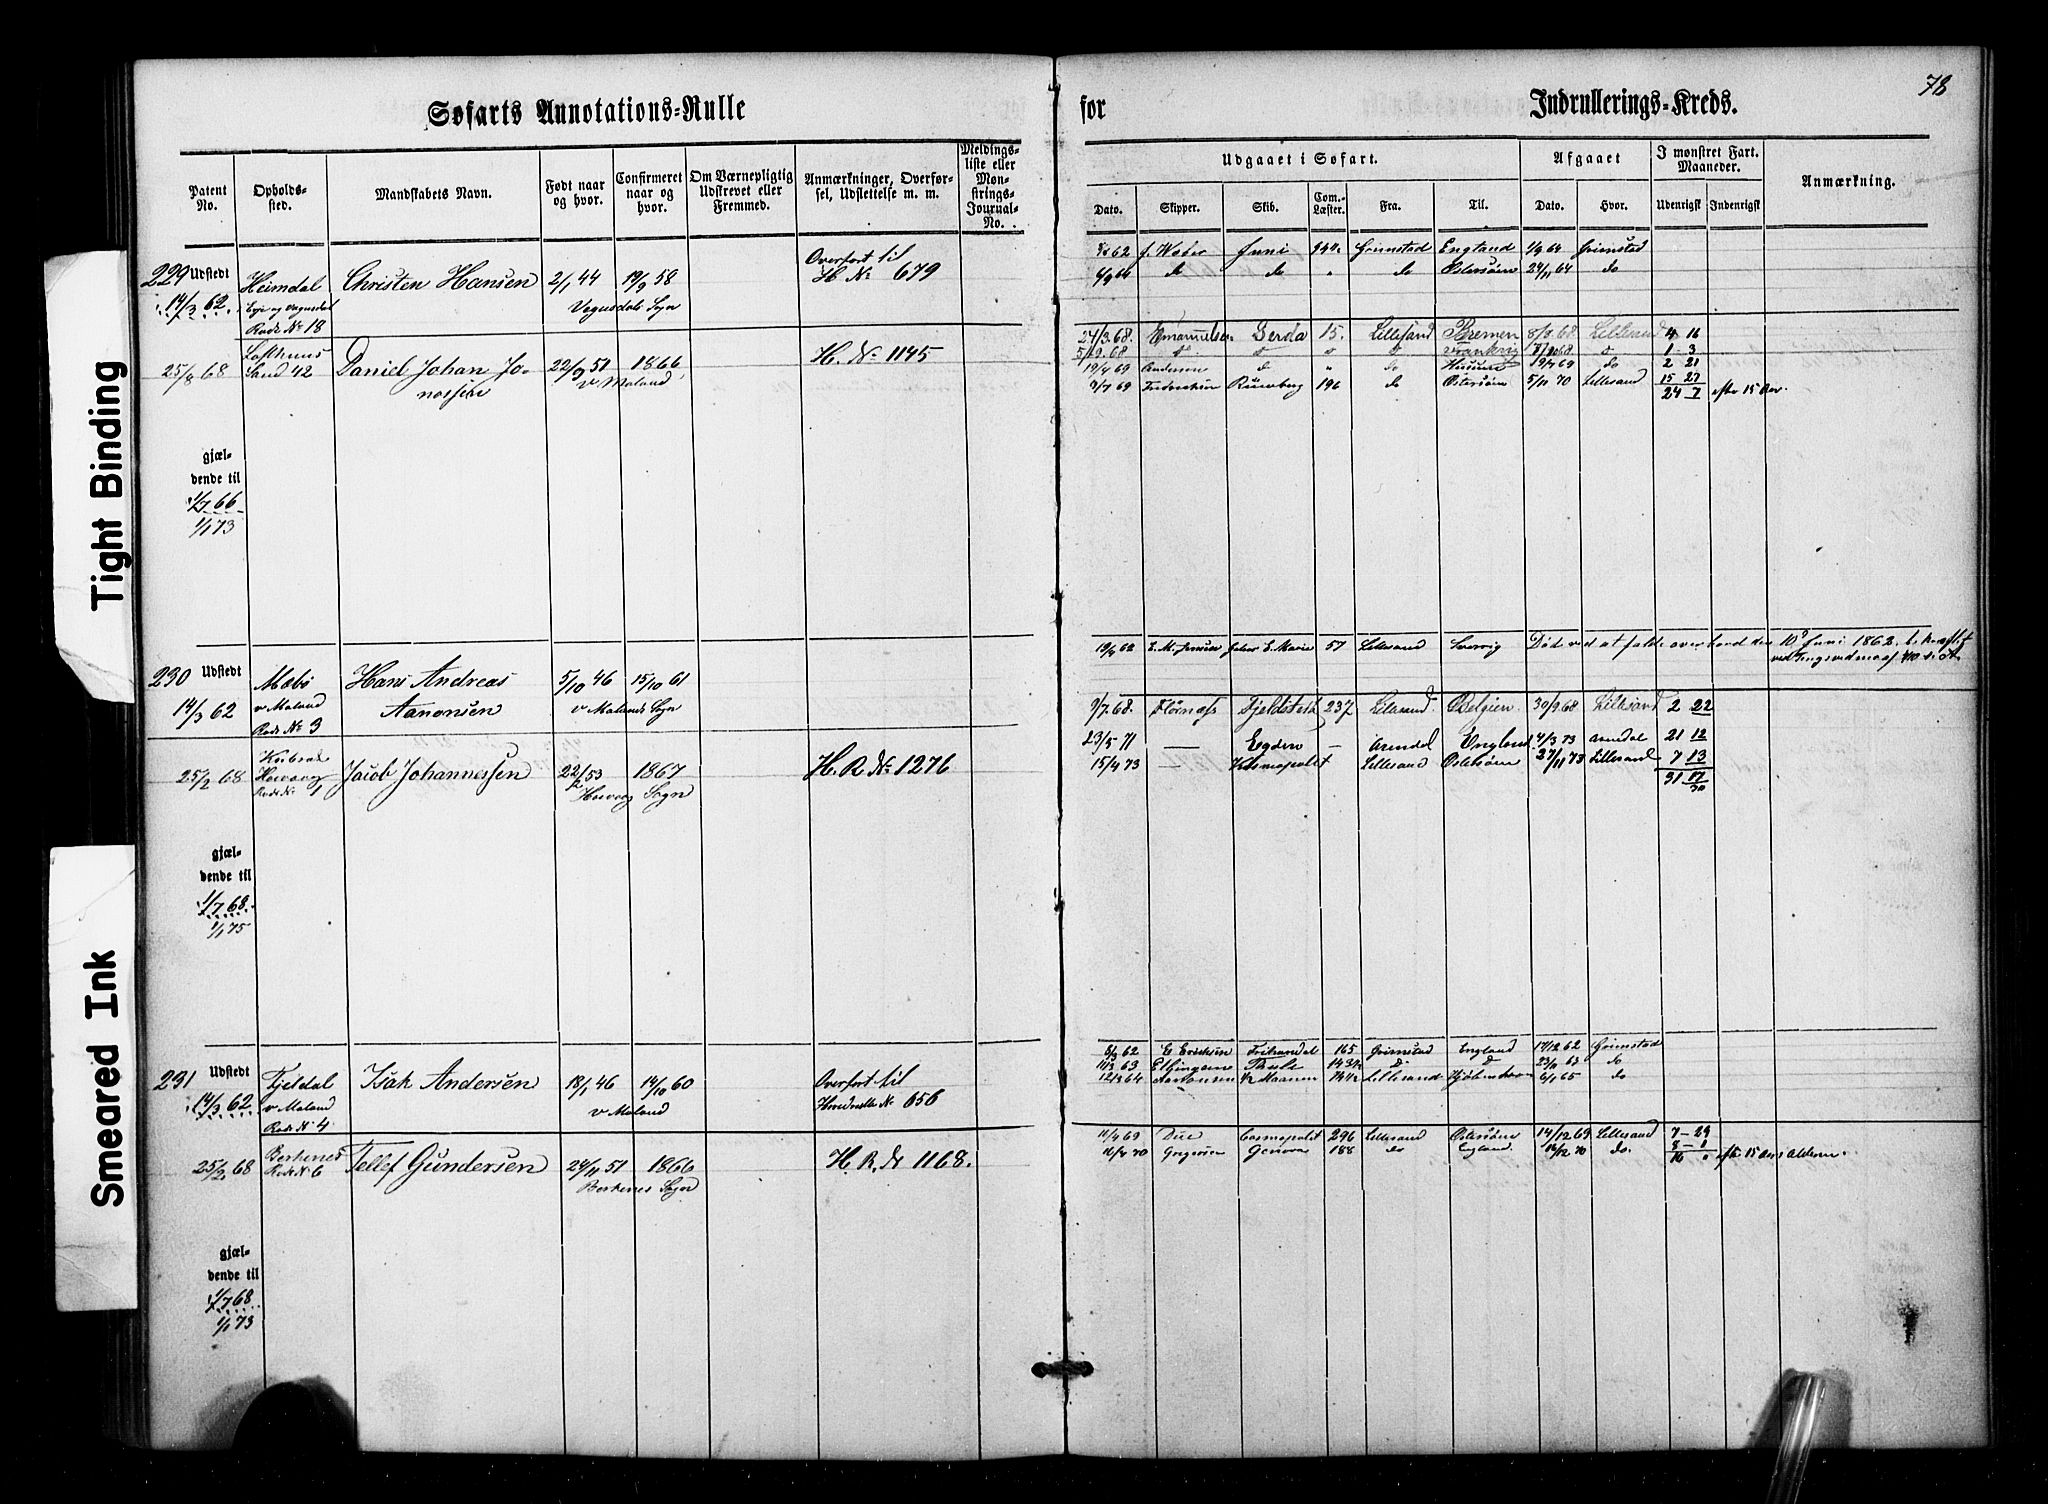 Tight Binding
Smeared Ink
78
Søfarts Annotations-Rulle
for
Indrullerings-Kreds.
Patent No.
Opholds-sted.
Mandskabets Navn.
Født naar og hvor.
Confirmeret naar og hvor.
Om Værnepligtig Udskrevet eller Fremmed.
Anmærkninger, Overførsel, Udslettelse m. m.
Meldings-liste eller Mønstrings-Journal-No.
Udgaaet i Søfart.
Afgaaet
I mønstret Fart. Maaneder.
Anmærkning.
Dato. Skipper. Skib. Com.-Læster. Fra. Til. Dato. Hvor. Udenrigsk Indenrigsk
229 Udstedt 14/3 62.
Heimdal
Evje og Vegusdal
Rode No 18
Christen Hansen
2/1 44
19/9 58
Vegusdals Sogn
Overført til
H No 679
62 J. Weber Juni Grimstad England 1/9 64 Grimstad
do do " do Østersøen 24/11 64 do
25/8 68
Sand 42
Daniel Johan Jo-
nossen
22/9 51
1866
v. Moland
H. No 1145
24/3 68. Emanuelsen Gerda 15. Lillesand Bremen 8/9 68 Lillesand 4 16
5/10 68 Frankrig 1 - 3
19/4 69 Andersen do " do 19/7 69 do 2 21
9/7 69 Rünaberg 196 do Østersøen 5/11 70 Lillesand 15 27
24 7 efter 15 Aar.
gjæl-
dende til
1/7 66
1/1 73
230 Udstedt
14/3 62
Mæbø
v Moland
Rode No 3
Hans Andreas
Aanonsen
5/10 46
15/10 61
v Molands Sogn
19/4 62 E. M. Jensen 57 Lillesand Død ved at falde overbord den 10de Juni 1862.
25/2 68
Høvaag
Rode No 1
Jacob Johannessen
22/2 53
1867
Høvaag Sogn
H. R. No 1276
9/7 68. Fjeldstedt 237 Lillesand Belgien 30/9 68 Lillesand 2 22
23/5 71 — Egden — Arendal England 4/3 73 Arendal 21 12
15/4 73 — Kosmopolit Lillesand Østersøen 27/11 73 Lillesand 7 13
31 17
30
gjæl-
dende til
1/7 68.
1/1 75
231 Udstedt
14/3 62.
Tjeldal
v Moland
Rode No 4
Isak Andersen
18/1 46
14/10 60
v Moland
Overført til
Hovedrulle No 656
8/3 62 E Eriksen Frihandel 165 Grimstad England 17/12 62 Grimstad
11/3 63 Thule 143½ 23/11 63 do
12/3 64 Aanonsen 144½ Lillesand Kjøbenhavn 6/1 65 do
25/2 68
Berkenes
Rode No 6
Tellef Gundersen
24/11 51
1866
Berkenes Sogn
H. R. No 1168.
11/4 69 Due Cosmopolit 296 Lillesand Østersøen 14/12 69 Lillesand 7 - 29
12/4 70 Gregersen Genova 188 do England 13/12 70 do. 8 - 1
16 0 efter 15 Aars Alderen.
gjæl-
dende til
1/7 68
1/1 73